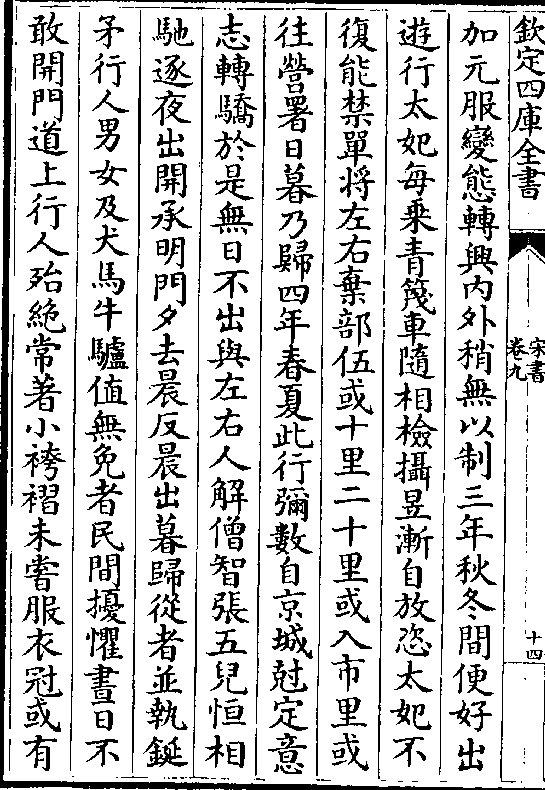 欽定四庫全書
宋書
卷九
十四
加元服變態轉興内外稍無以制三年秋冬間便好出
遊行太妃每乗青篾車隨相檢攝昱漸自放恣太妃不
復能禁單将左右棄部伍或十里二十里或入市里或
往營署日暮乃歸四年春夏此行彌數自京城尅定意
志轉驕於是無日不出與左右人解僧智張五兒恒相
馳逐夜出開承明門夕去晨反晨出暮歸從者並執鋋
矛行人男女及犬馬牛驢值無免者民間擾懼晝日不
敢開門道上行人殆絶常著小袴褶未嘗服衣冠或有